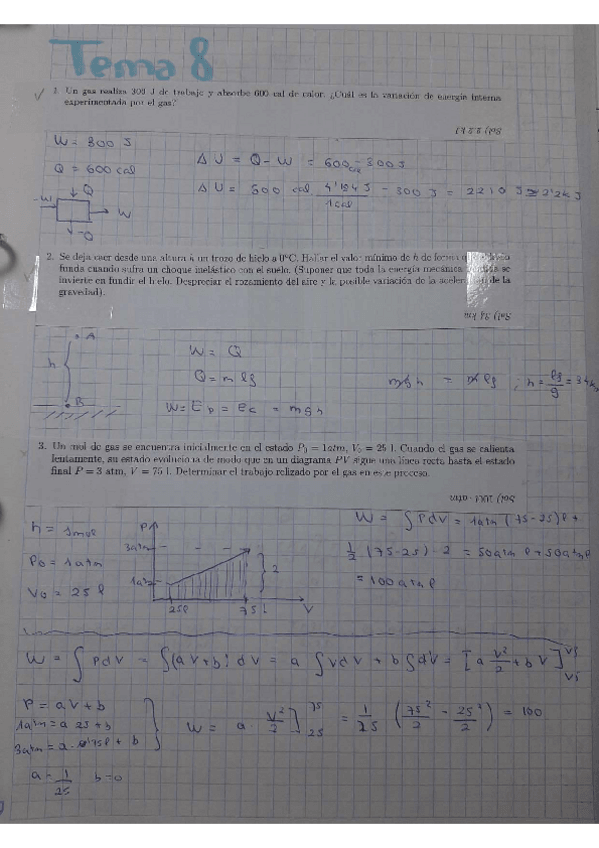 Tema 8
1. Un gas realiza 300 J de trabajo y absorbe 600 cal de calor. ¿Cuál es la variación de energía interna
experimentada por el gas?
Sol) 2.2 kJ
W = 300 J
Q = 600 cal
Δ U = Q - W = 600 cal - 300 J
Δ U = 600 cal 4'184 J / 1 cal - 300 J = 2210 J ≃ 2'2 kJ
-W
Q
W
-Q
2. Se deja caer desde una altura h un trozo de hielo a 0°C. Hallar el valor mínimo de h de forma
funda cuando sufra un choque inelástico con el suelo. (Suponer que toda la energía mecánica se
invierte en fundir el hielo. Despreciar el rozamiento del aire y la posible variación de la aceleración de la
gravedad).
Sol) 34 km
A
h
B
W = Q
Q = m lf
W = Ep = Ec = mgh
mgh = m lf ; h = lf / g = 34 k
3. Un mol de gas se encuentra inicialmente en el estado P₀ = 1atm, V₀ = 25 l. Cuando el gas se calienta
lentamente, su estado evoluciona de modo que en un diagrama PV sigue una línea recta hasta el estado
final P = 3 atm, V = 75 l. Determinar el trabajo relizado por el gas en este proceso.
Sol) 100 l · atm
n = 1mol
P₀ = 1atm
V₀ = 25 l
P
3atm
1atm
2
25l
75 l
V
W = ∫ P dV = 1atm (75-25) l +
1/2 (75-25) · 2 = 50atm l + 50atm l
= 100 atm l
W = ∫ P dV = ∫(a V + b) dV = a ∫ V dV + b ∫ dV = [a V²/2 + b V]
P = a V + b
1atm = a 25 + b
3atm = a · 75l + b
a = 1/25 b = 0
W = a · V²/2 ]₂₅⁷⁵ = 1/25 (75²/2 - 25²/2) = 100